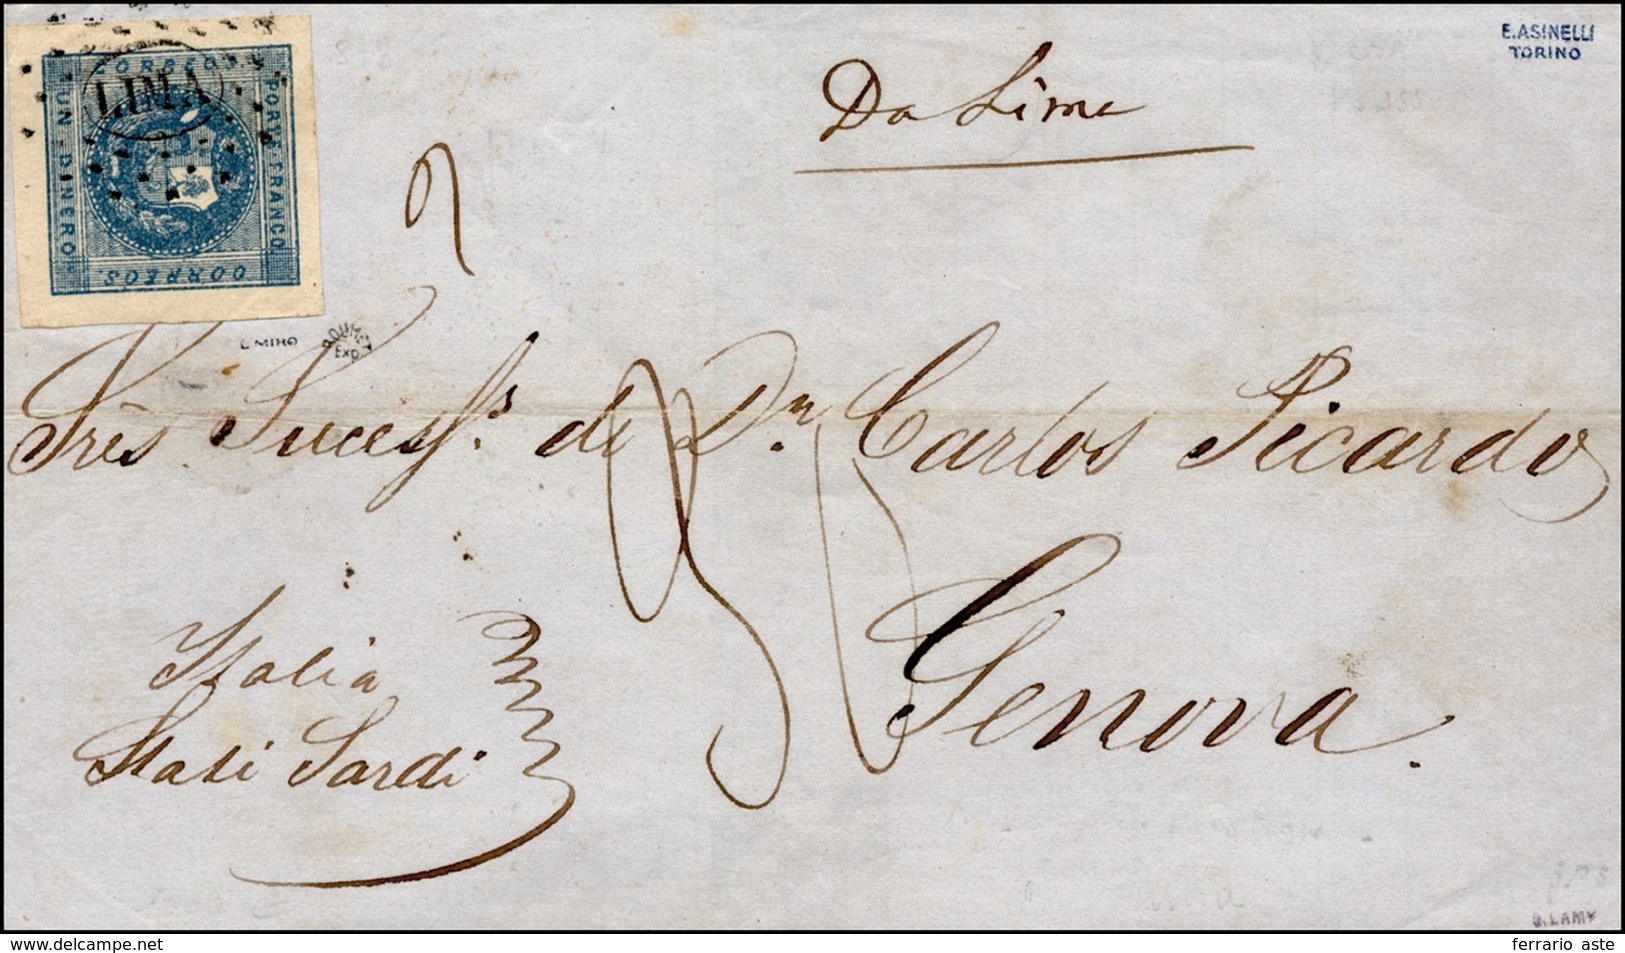 CORREOS
PORTE FRANCO
UN DINERO
CORREOS.
LIMA
E. ASINELLI
TORINO
Da Lima
E MIRO
ROUMET
Exp
Srès Sucess.s de Dn Carlos Picardo
Genova.
Italia
Stati Sardi
G. LAMY
www.delcampe.net
ferrario aste